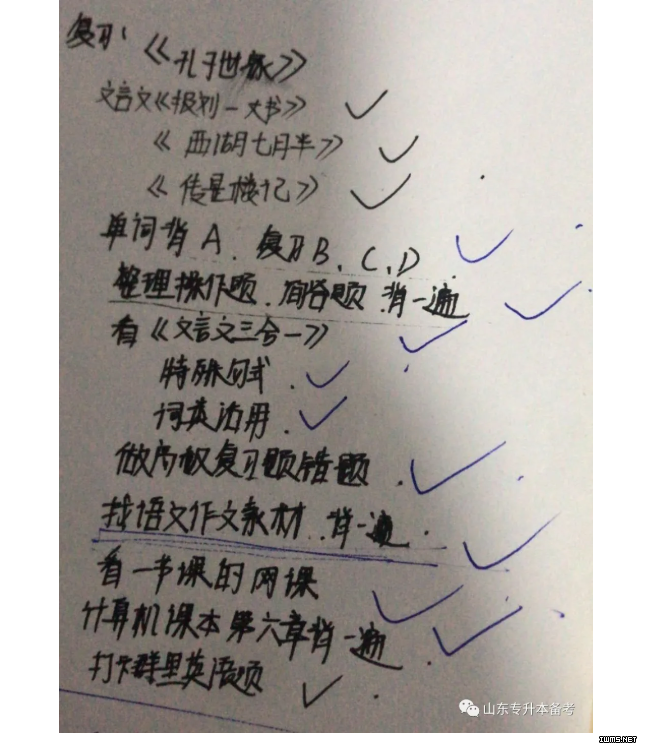 复习：《孔子世家》
文言文《报刘一丈书》
《西湖七月半》
《传是楼记》
单词背A、复习B、C、D
整理操作题、简答题 背一遍
看《文言文三合一》
特殊句式.
词类活用.
做高数复习题错题.
找语文作文素材.背一遍.
看一节课的网课
计算机课本第六章背一遍.
打卡群里英语题.
山东专升本备考
IWMS.NET